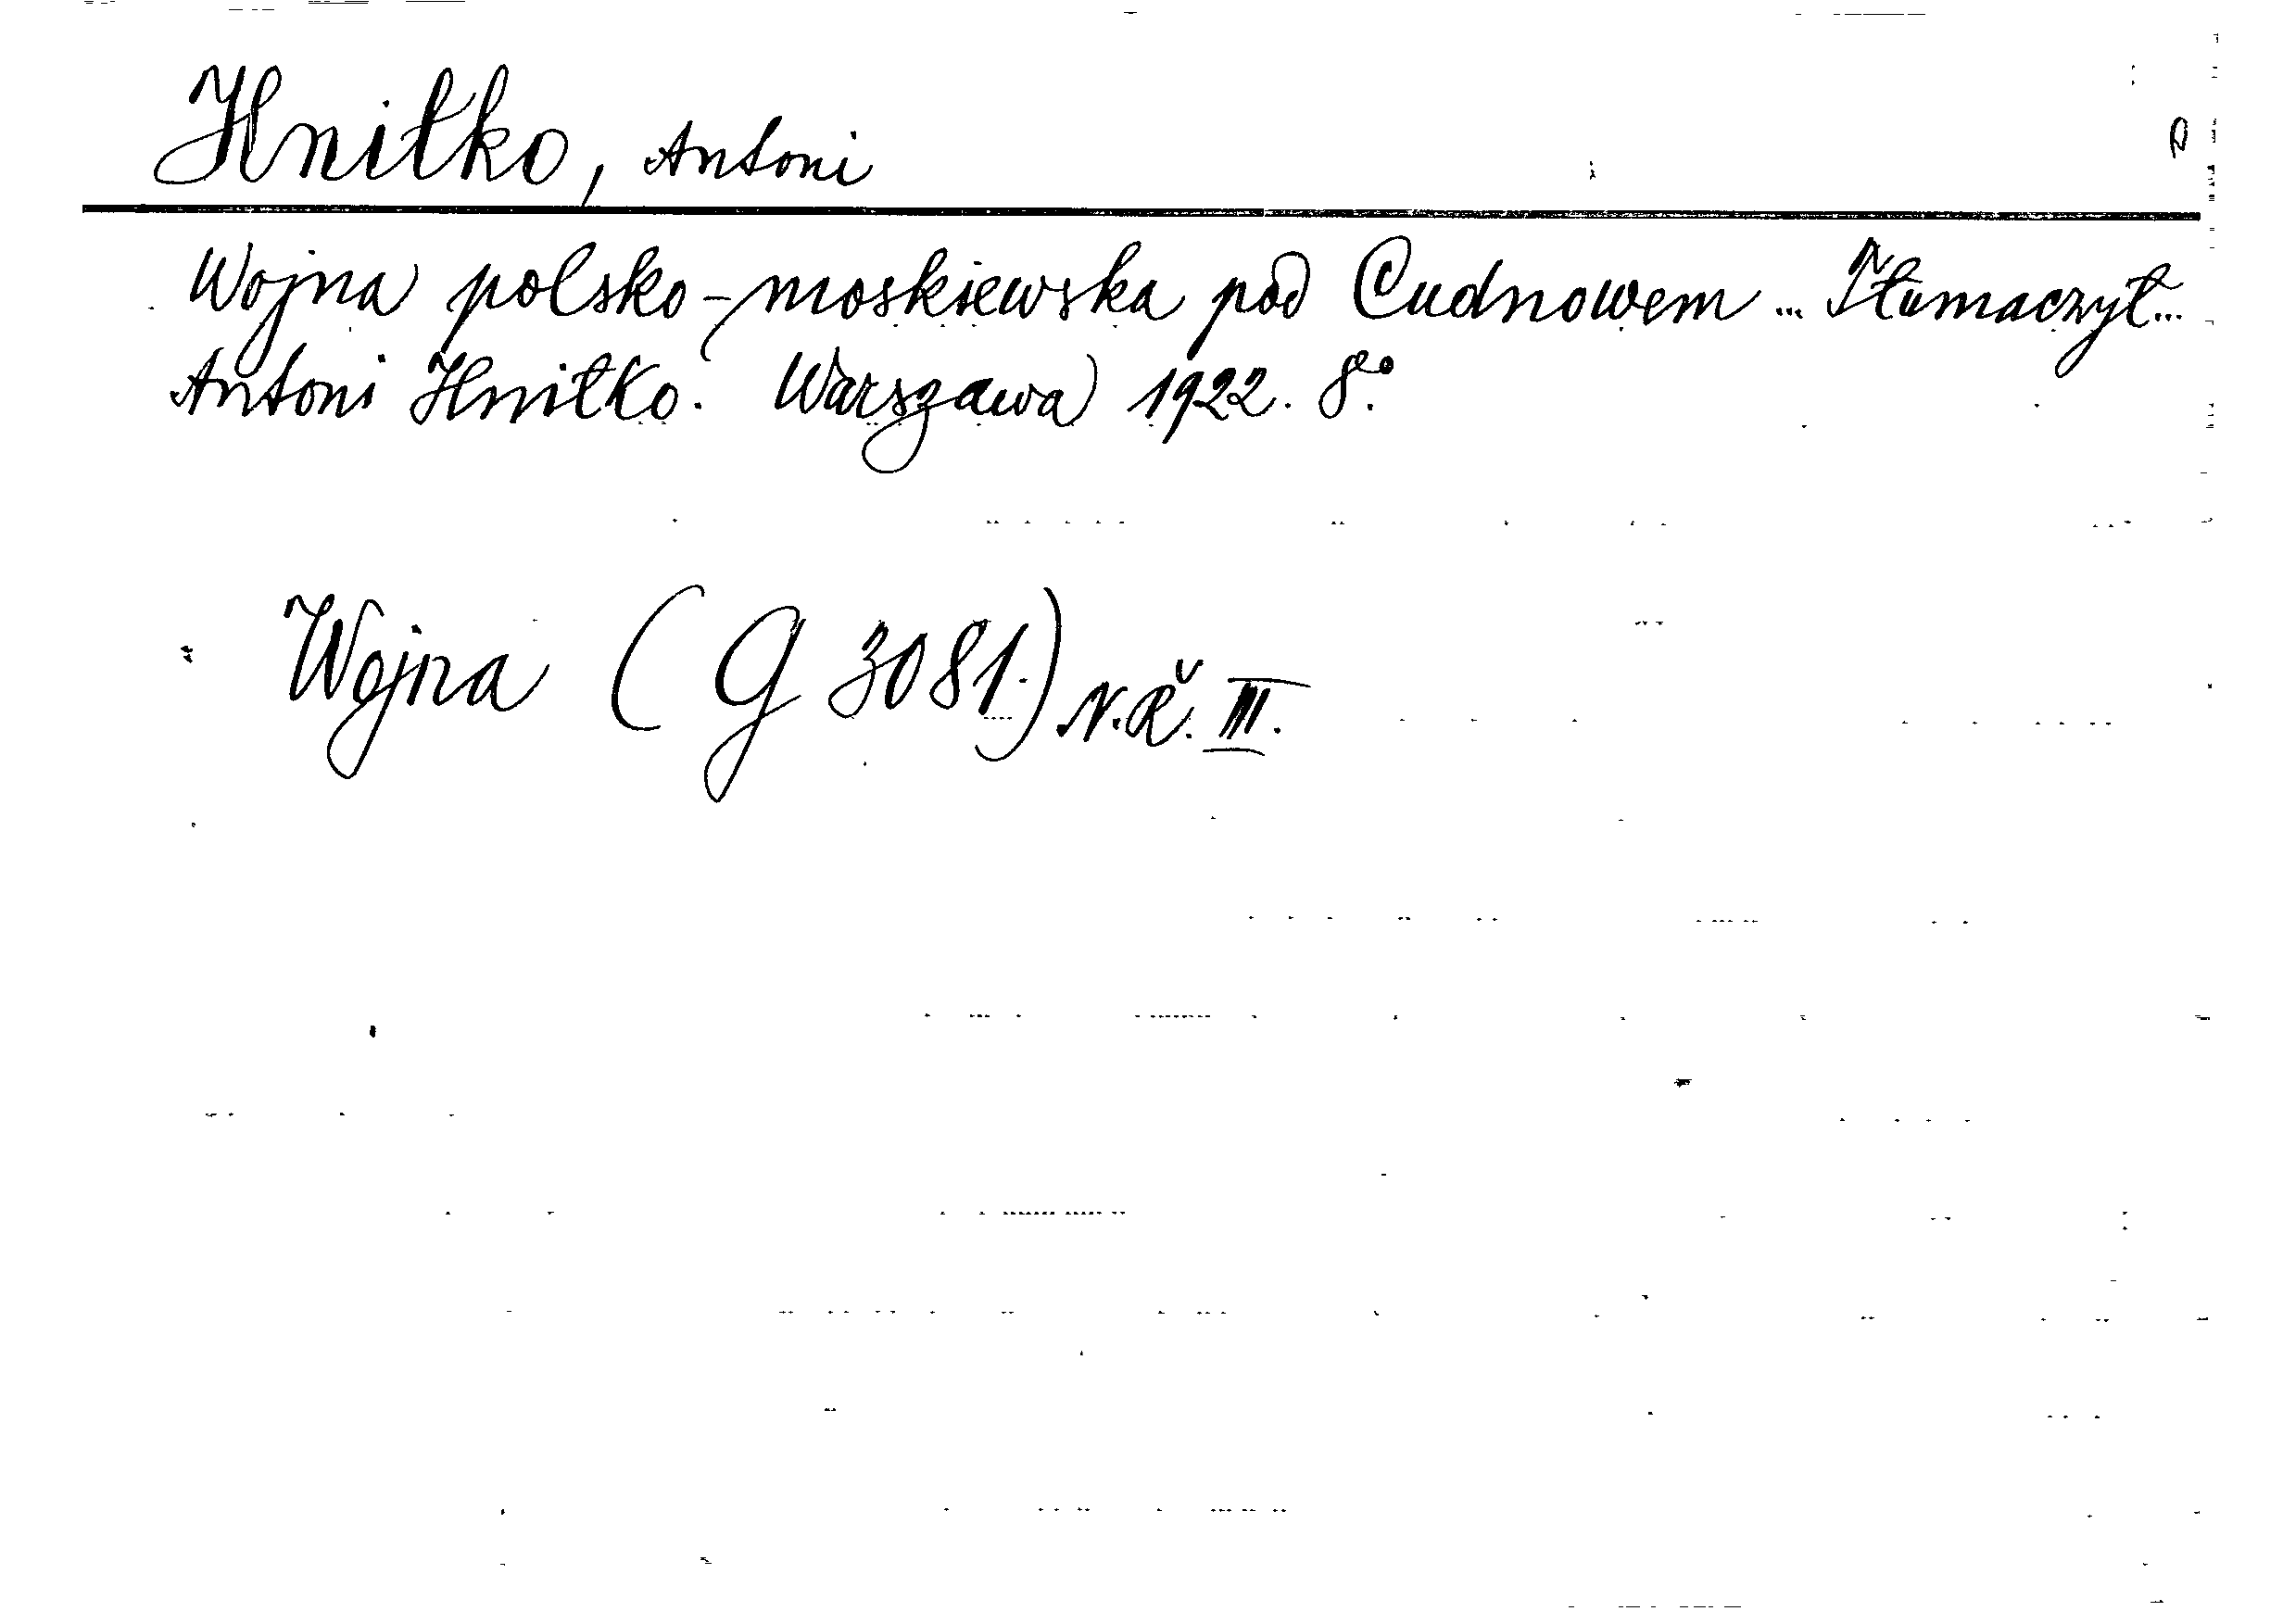 Hniłko, Antoni
Wojna polsko-moskiewska pod Cudnowem ... Tłumaczył...
Antoni Hniłko. Warszawa 1922. 8°.
Wojna (G 3081.) N.Ř. III.